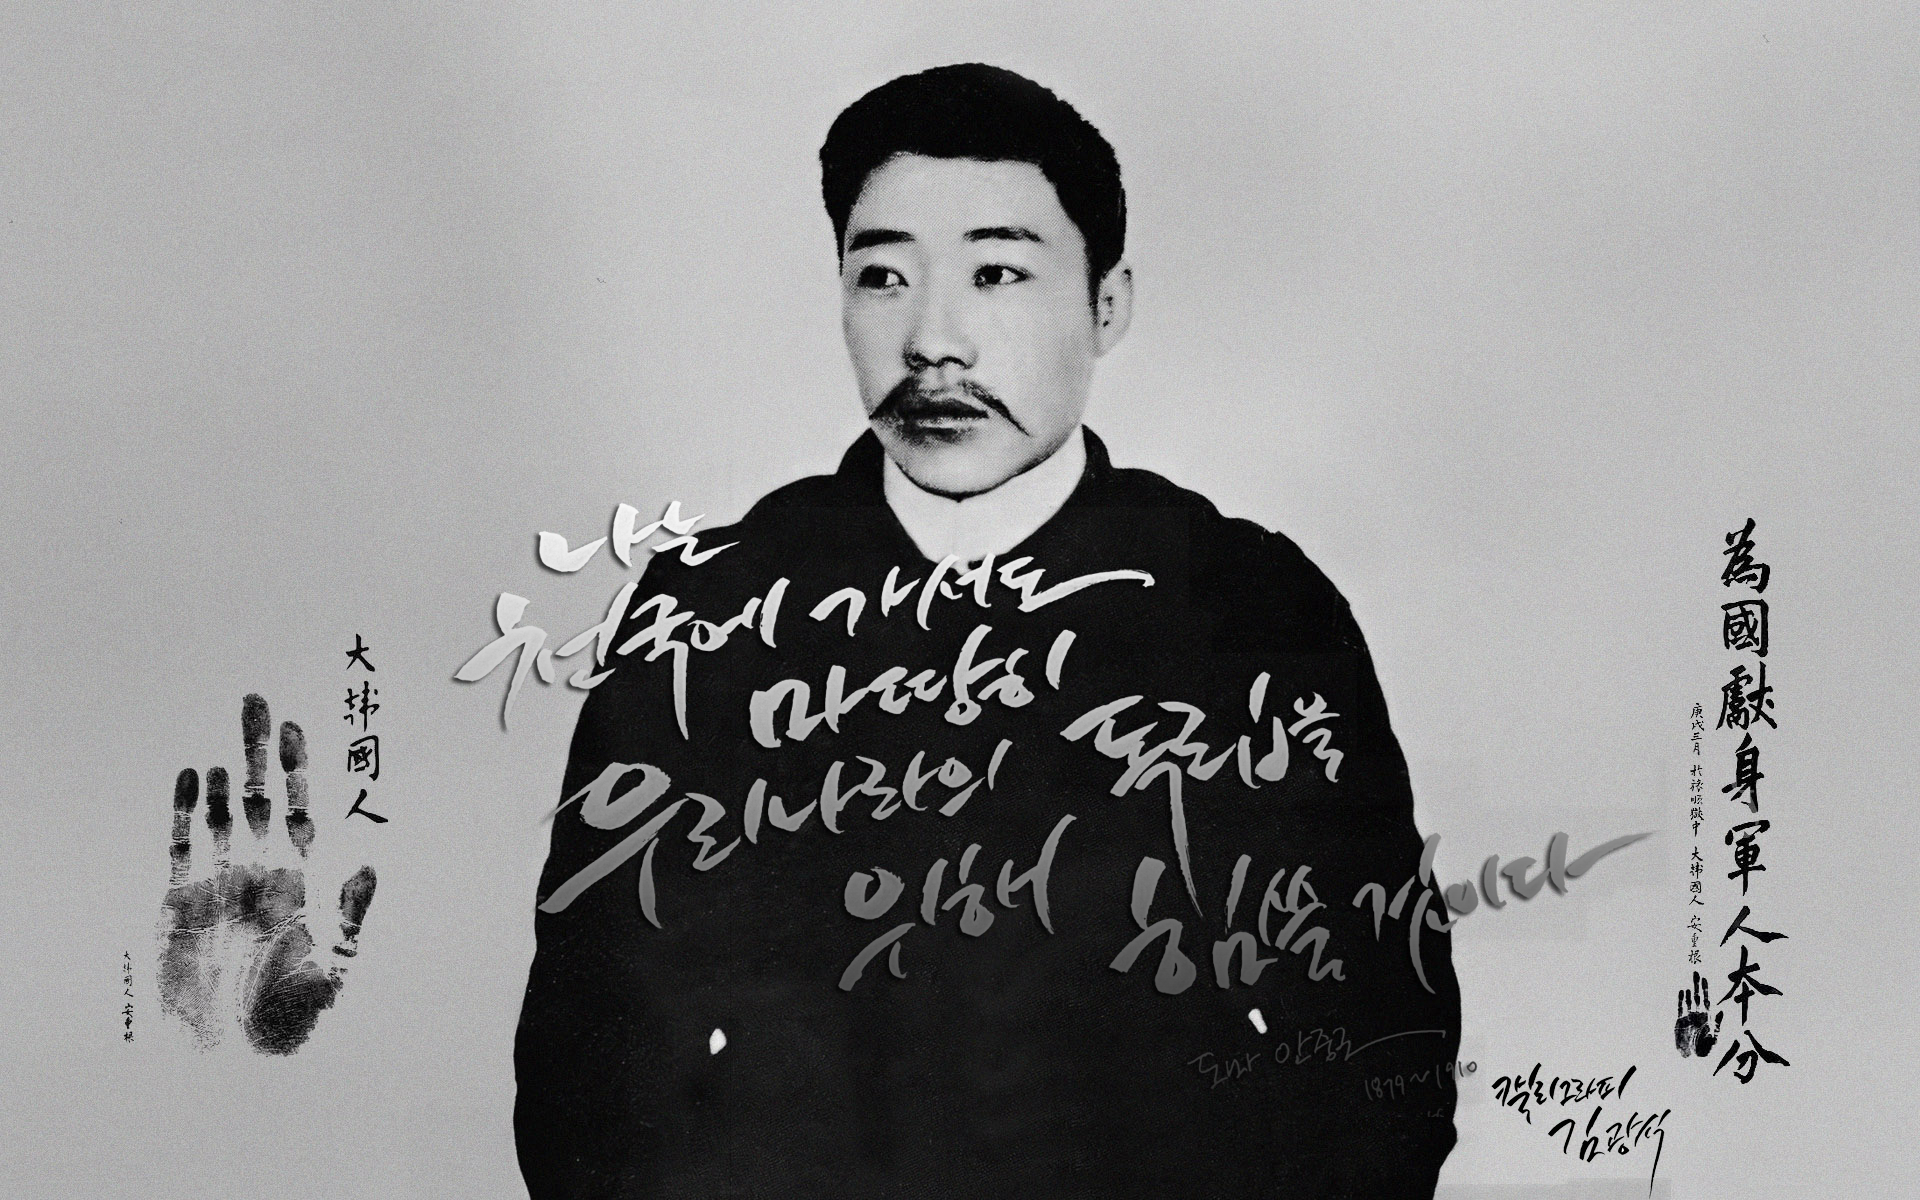 나는
천국에 가서도
마땅히
우리나라의 독립을
위해 힘쓸 것이다
도마 안중근
1879~1910
캘리그라피
김광석
大韓國人
大韓國人 安重根
為國獻身軍人本分
庚戌三月 於旅順獄中 大韓國人 安重根